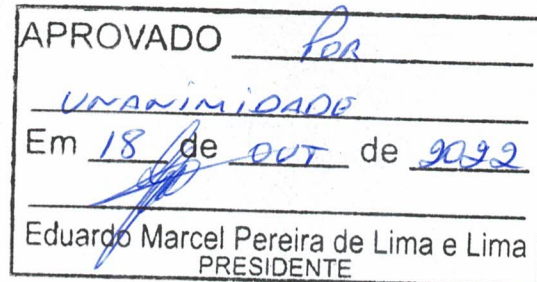 APROVADO Por
UNANIMIDADE
Em 18 de OUT de 2022
Eduardo Marcel Pereira de Lima e Lima
PRESIDENTE